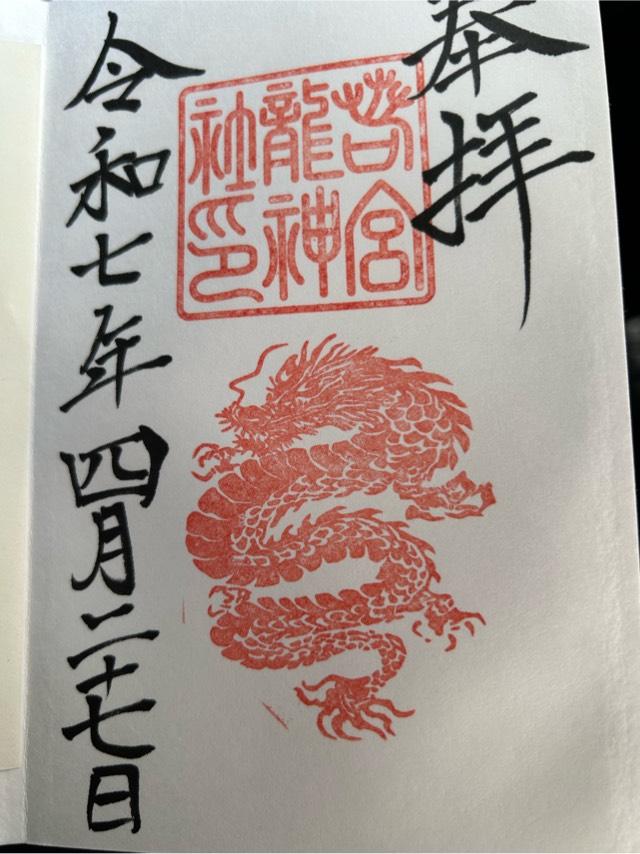 奉拝
若宮
龍神
社印
令和七年四月二十七日